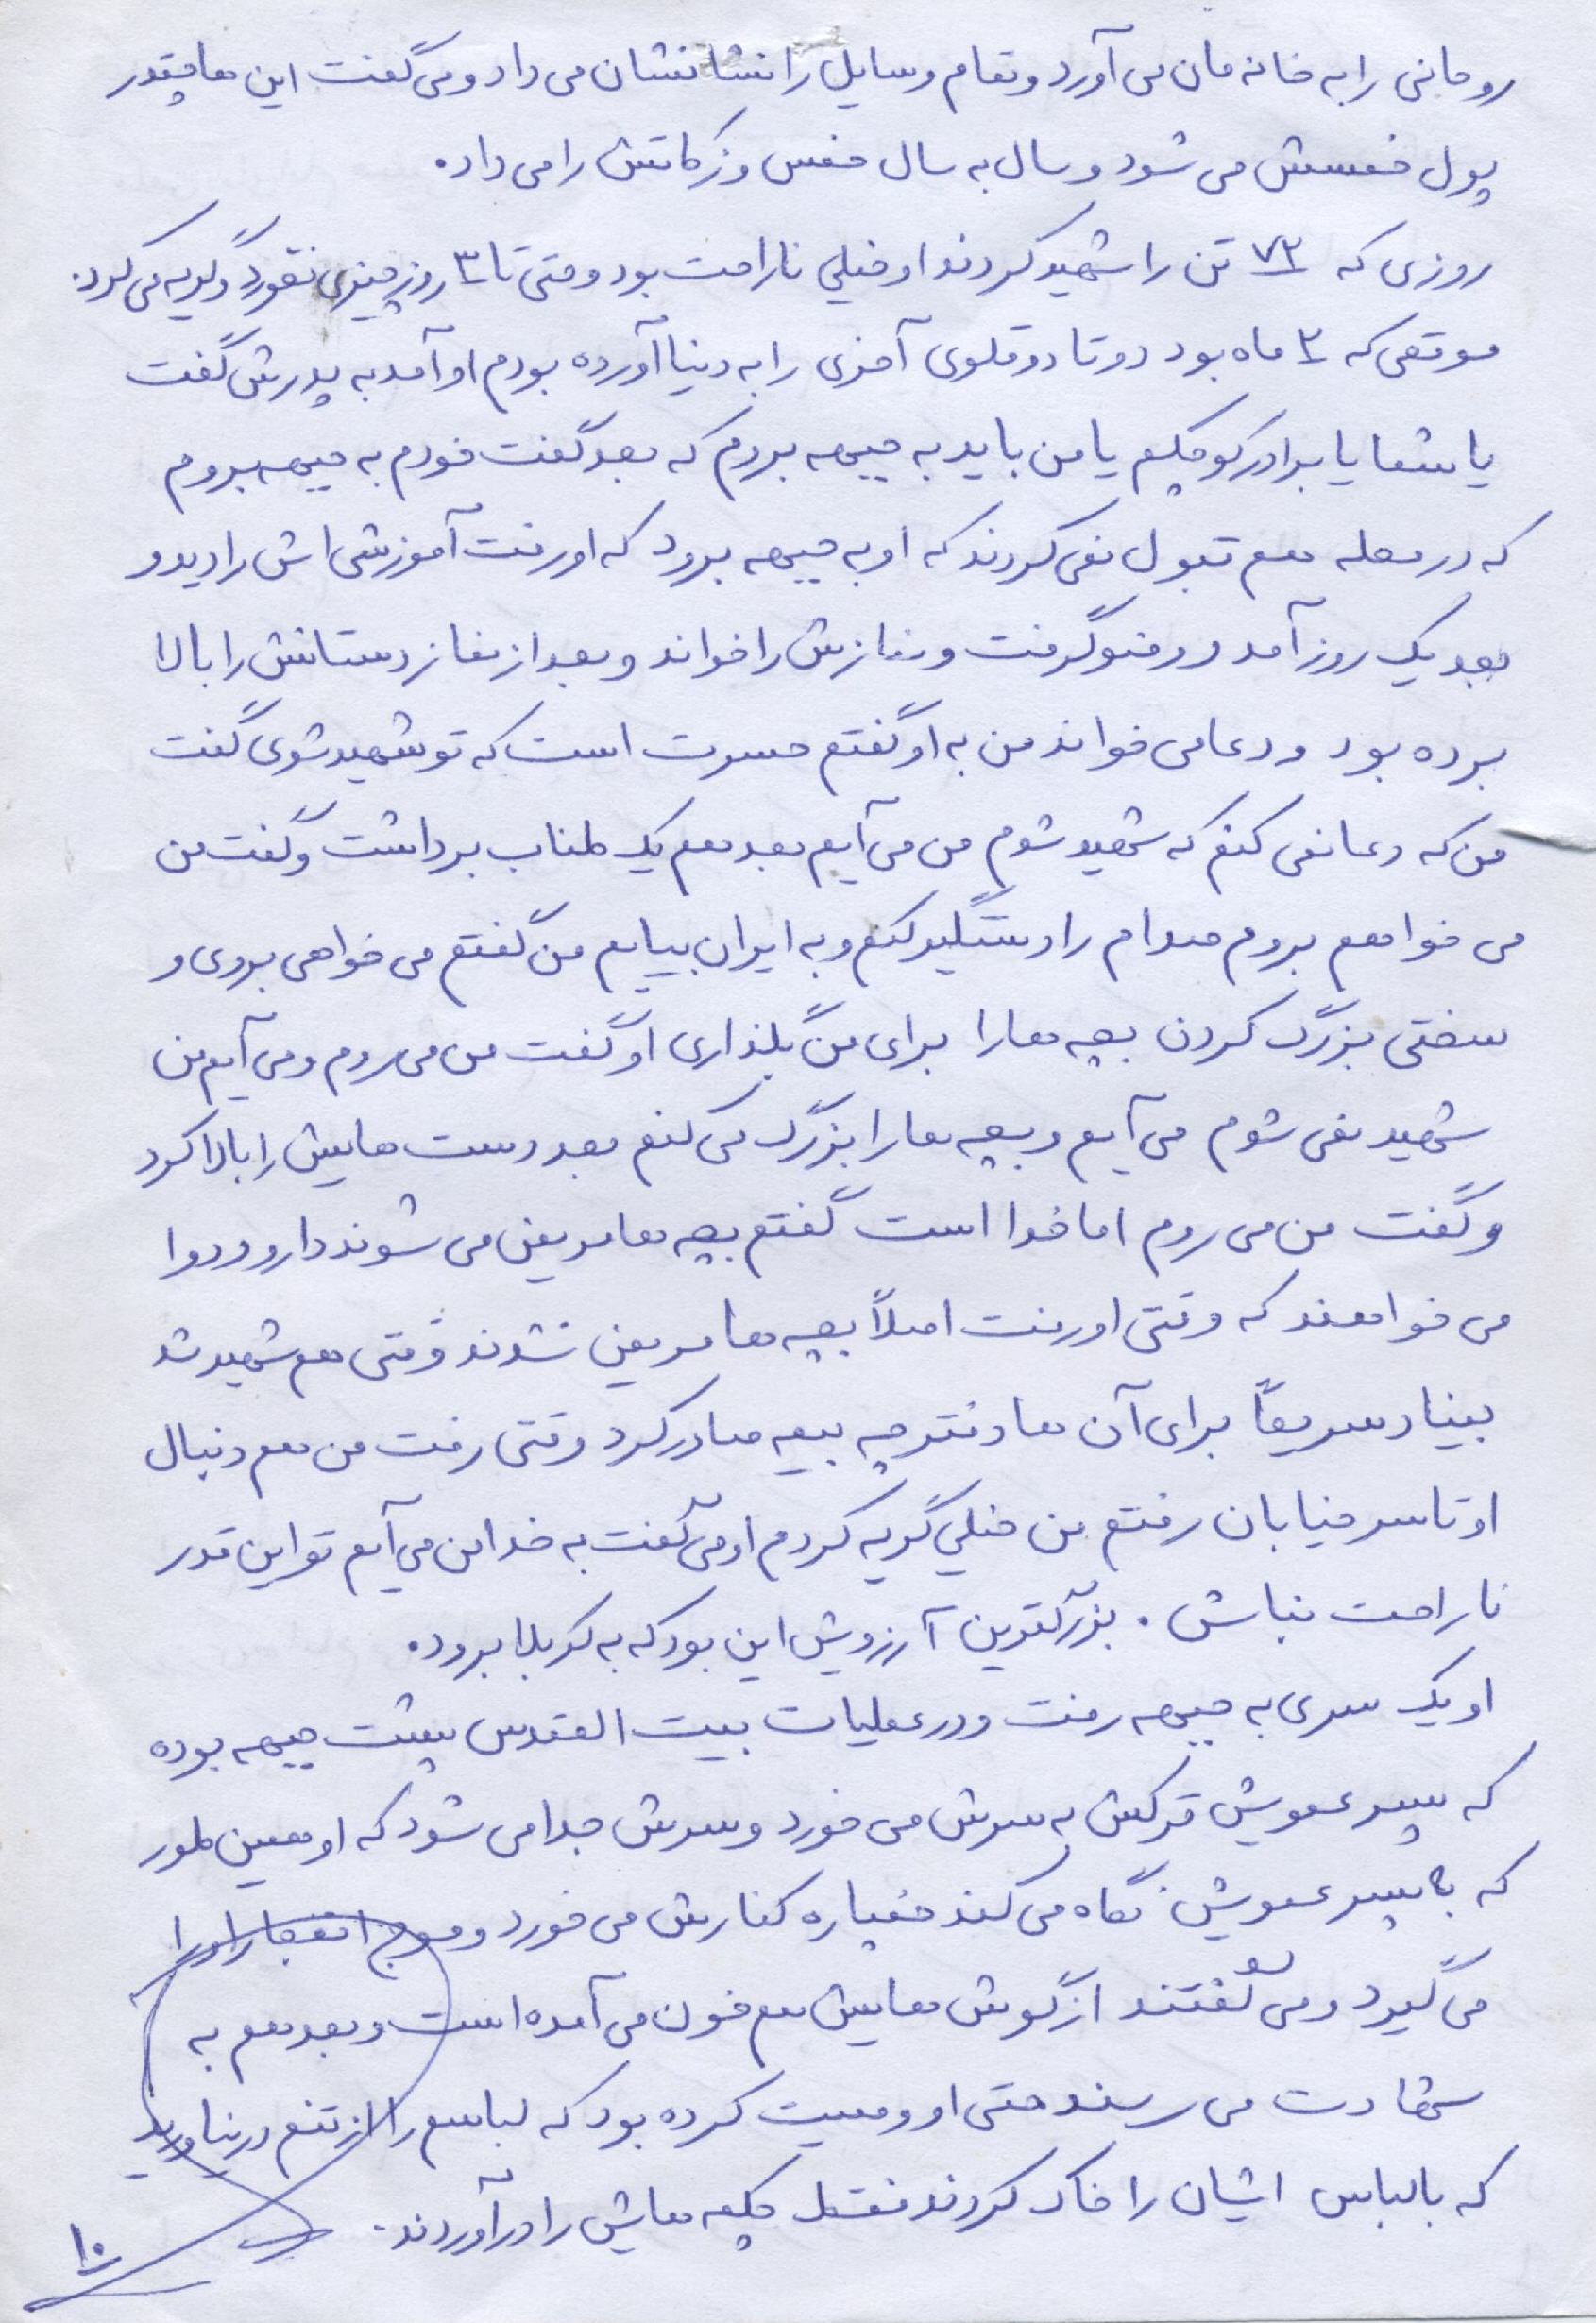 روحانی را به خانه مان می آورد و تمام وسایل را نشانشان می داد و می گفت این ها چقدر
پول خمسش می شود و سال به سال خمس و زکاتش را می داد.
روزی که ۷۲ تن را شهید کردند او خیلی ناراحت بود و حتی تا ۳ روز چیزی نخورد و گریه می کرد.
موقعی که ۲ ماه بود دو تا دوقلوی آخری را به دنیا آورده بودم او آمد به پدرش گفت
یا شما یا برادر کوچکم یا من باید به جبهه بروم که بعد گفت خودم به جبهه بروم
که در محله هم قبول نمی کردند که او به جبهه برود که او رفت آموزشی اش را دید و
بعد یک روز آمد و وضو گرفت و نمازش را خواند و بعد از نماز دستانش را بالا
برده بود و دعا می خواند من به او گفتم حسرت است که تو شهید شوی گفت
من که دعا نمی کنم که شهید شوم من می آیم بعد هم یک طناب برداشت و گفت من
می خواهم بروم صدام را دستگیر کنم و به ایران بیایم من گفتم می خواهی بروی و
سختی بزرگ کردن بچه ها را برای من بگذاری او گفت من می روم و می آیم من
شهید نمی شوم می آیم و بچه ها را بزرگ می کنم بعد دست هایش را بالا کرد
و گفت من می روم اما خدا است گفتم بچه ها مریض می شوند دارو و دوا
می خواهند که وقتی او رفت اصلاً بچه ها مریض نشدند وقتی هم شهید شد
بنیاد سریعاً برای آن ها دفترچه بیمه صادر کرد وقتی رفت من هم دنبال
او تا سر خیابان رفتم من خیلی گریه کردم او می گفت به خدا من می آیم تو این قدر
ناراحت نباش. بزرگترین آرزویش این بود که به کربلا برود.
او یک سری به جبهه رفت و در عملیات بیت المقدس پشت جبهه بوده
که پسر عمویش ترکش به سرش می خورد و سرش جدا می شود که او همین طور
که به پسر عمویش نگاه می کند خمپاره کنارش می خورد و موج انفجار او را
می گیرد و می گفتند از گوش هایش هم خون می آمده است و بعد هم به
شهادت می رسند حتی او وصیت کرده بود که لباسم را از تنم در نیاورید
که با لباس ایشان را خاک کردند فقط چکمه هایش را در آوردند.
۱۰